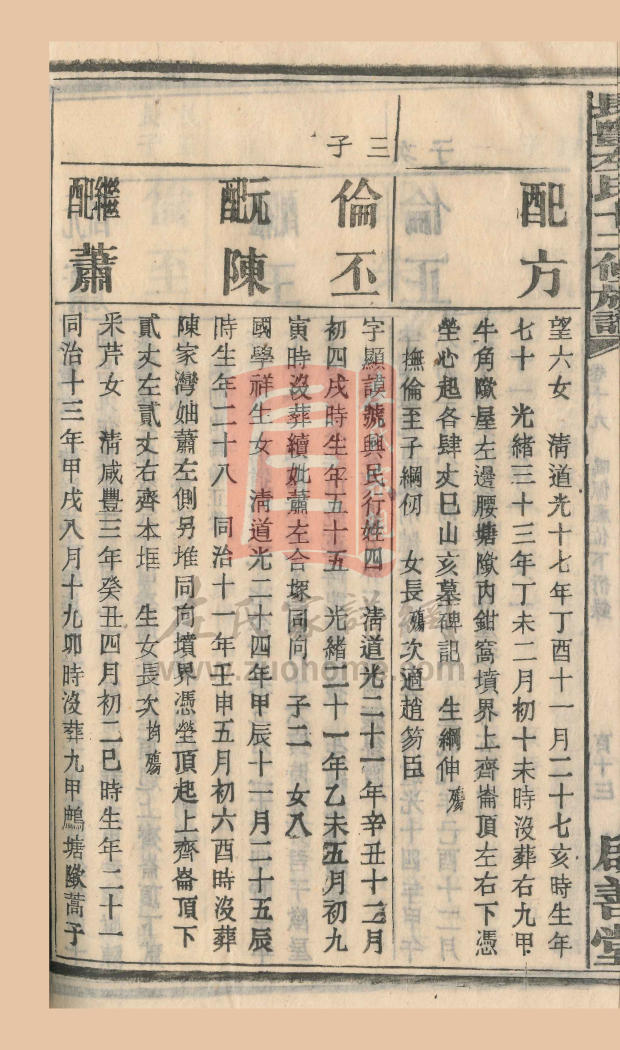 長豐左氏十二修族譜
百十三
啟善堂
配方
望六女 清道光十七年丁酉十一月二十七亥時生年
七十一 光緒三十三年丁未二月初十未時沒葬右九甲
牛角隞屋左邊腰塘隞內鉗窩墳界上齊崙頂左右下憑
塋心起各肆丈巳山亥墓碑記 生綱伸殤
撫倫至子綱伢 女長殤次適趙笏臣
三子
倫丕
字顯謨號興民行姓四 清道光二十一年辛丑十二月
初四戌時生年五十五 光緒二十一年乙未五月初九
寅時沒葬續妣蕭左合塚同向 子二 女八
元配陳
國學祥生女 清道光二十四年甲辰十一月二十五辰
時生年二十八 同治十一年壬申五月初六酉時沒葬
陳家灣妯蕭左側另堆同向墳界憑塋頂起上齊崙頂下
貳丈左貳丈右齊本堆 生女長次均殤
繼配蕭
采芹女 清咸豐三年癸丑四月初二巳時生年二十一
同治十三年甲戌八月十九卯時沒葬九甲鷓塘隞蒿子
左氏家譜網
www.zuohome.com